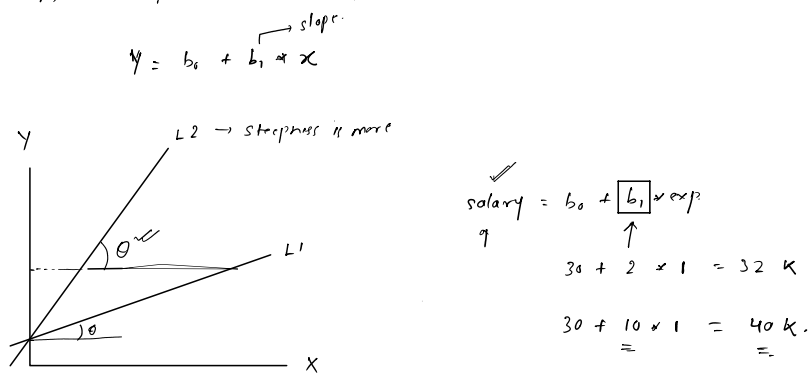 slope.
Y = b₀ + b₁ * x
Y
L2 → steepness is more
θ
L1
θ
X
salary = b₀ + b₁ * exp
↑
30 + 2 * 1 = 32 K
30 + 10 * 1 = 40 K.